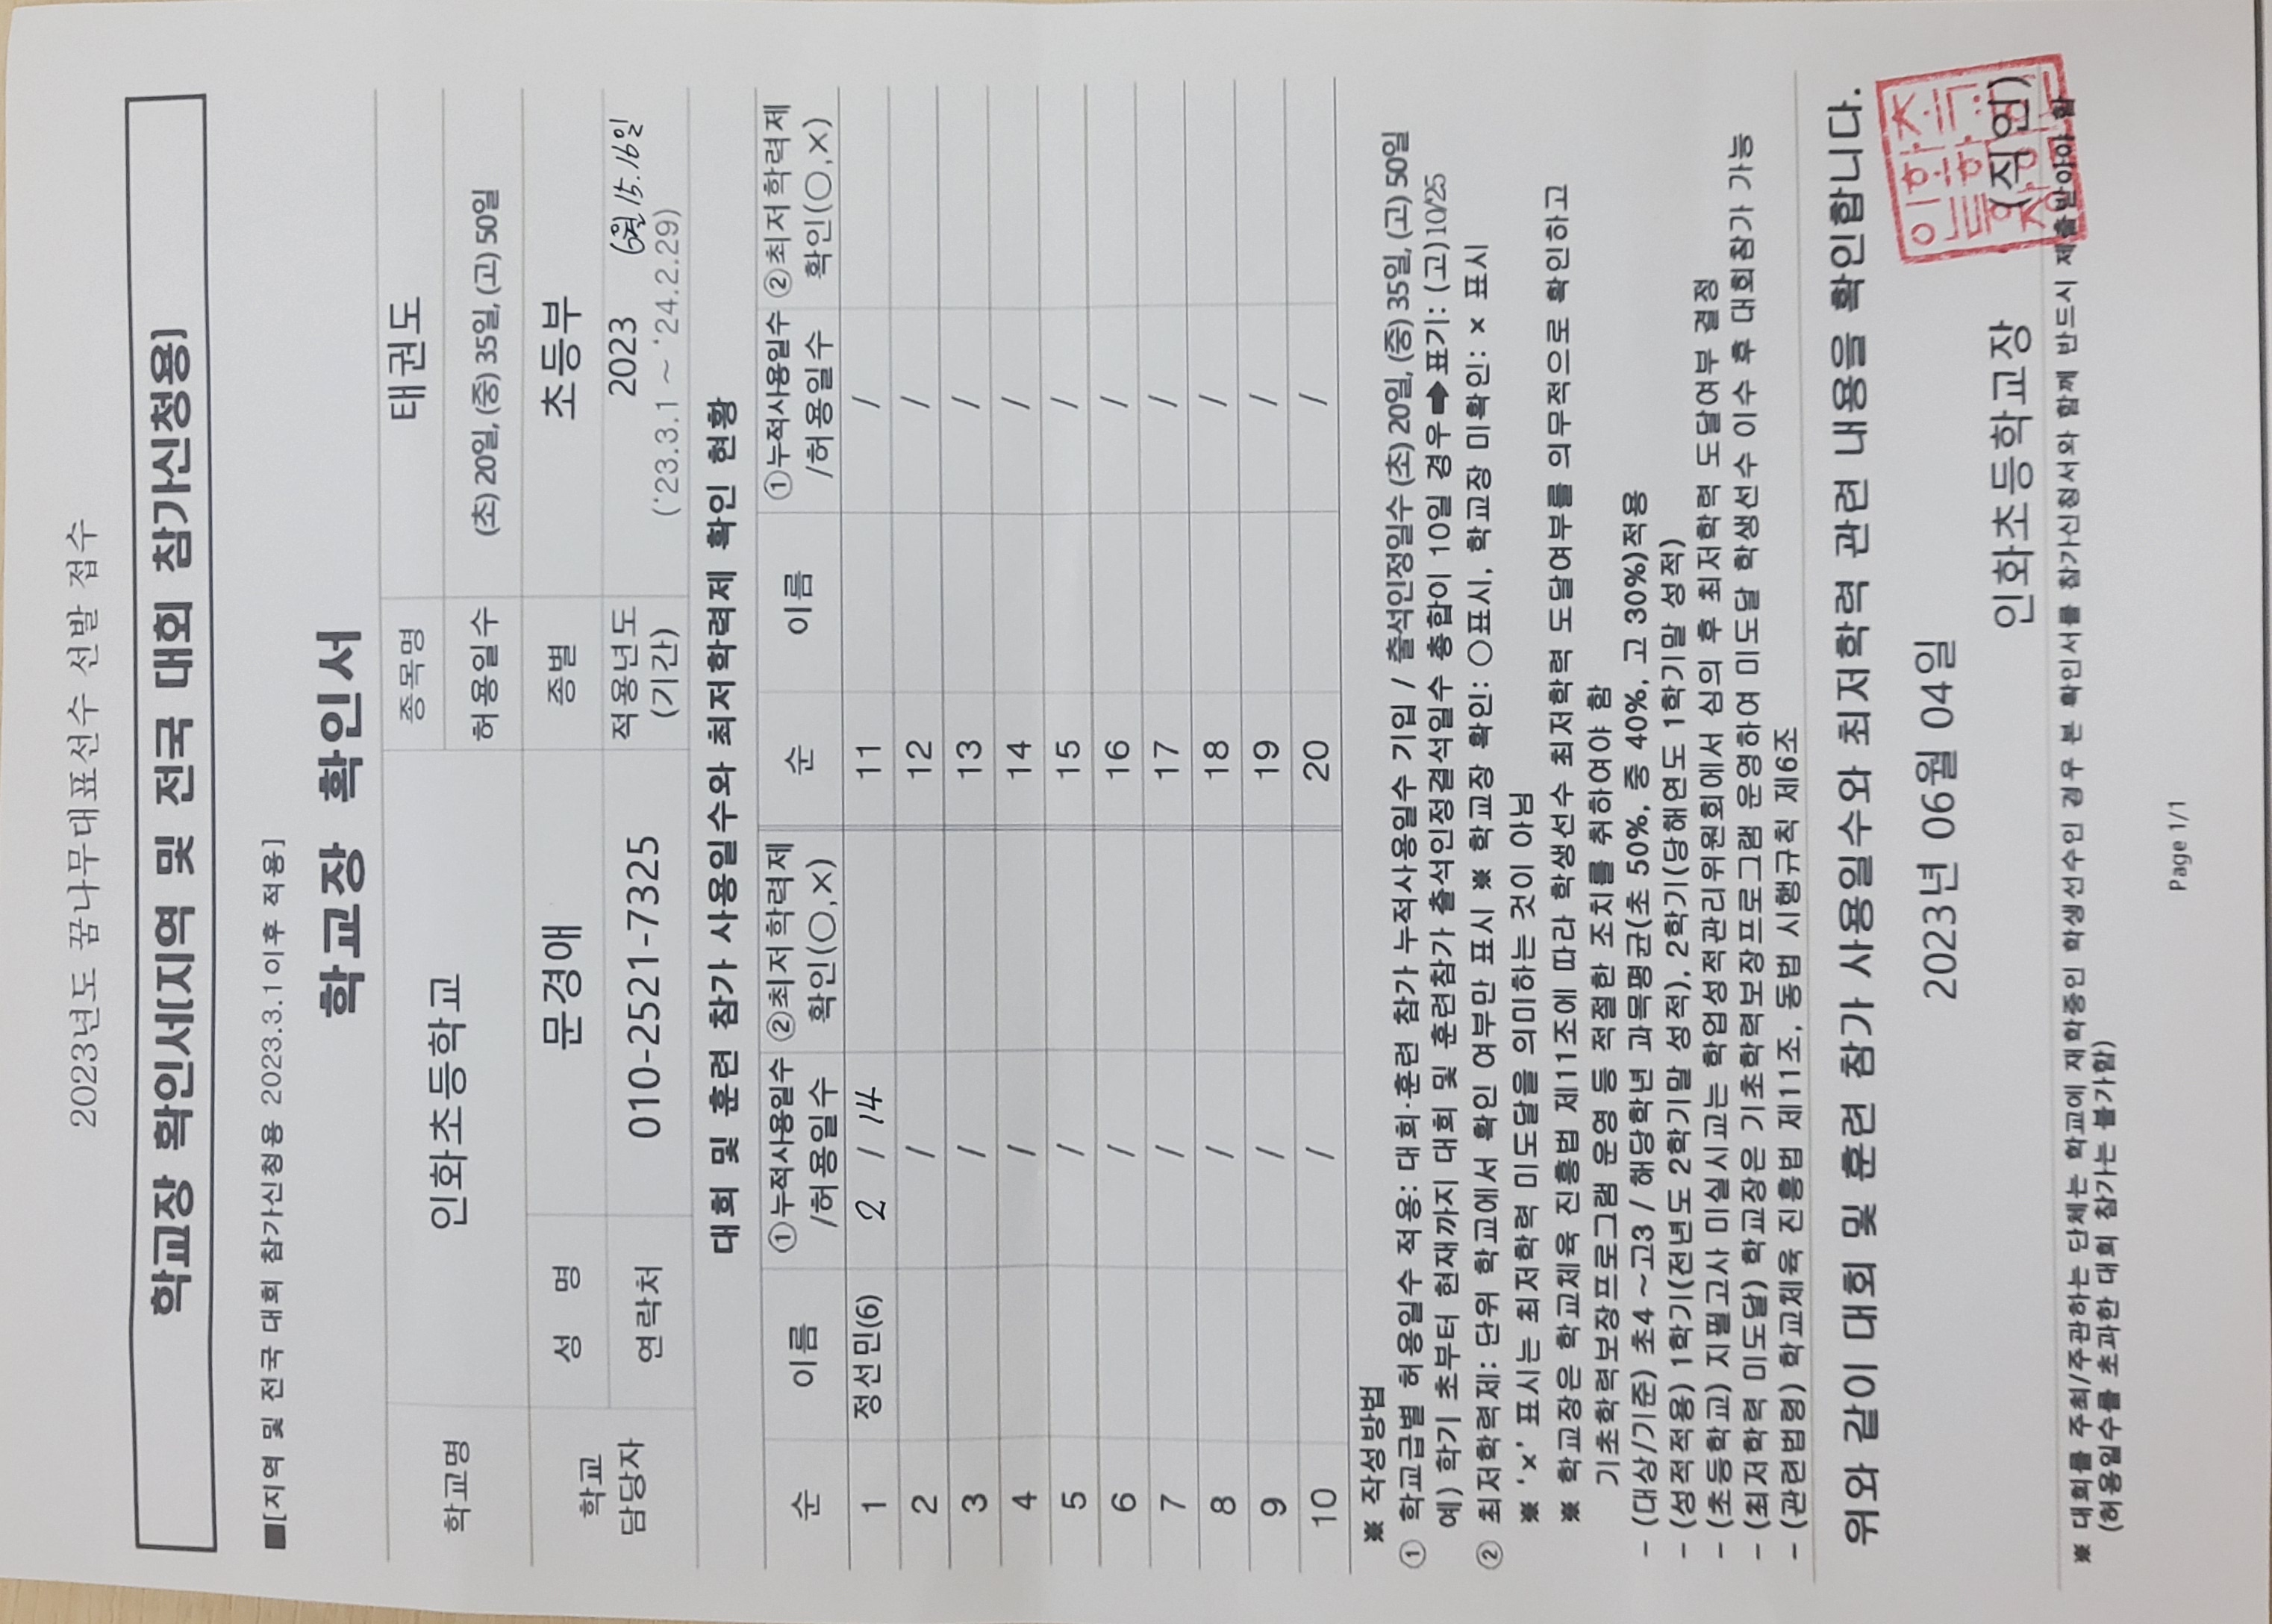 2023년도 꿈나무대표선수 선발 접수
학교장 확인서[지역 및 전국 대회 참가신청용]
■[지역 및 전국 대회 참가신청용 2023.3.1이후 적용]
학교장 확인서
학교명 인화초등학교 종목명 태권도
허용일수 (초) 20일, (중) 35일, (고) 50일
학교 담당자 성 명 문경애 종별 초등부
연락처 010-2521-7325 적용년도 (기간) 2023 6월 15.16일
('23.3.1 ~ '24.2.29)
대회 및 훈련 참가 사용일수와 최저학력제 확인 현황
순 이름 ①누적사용일수 /허용일수 ②최저학력제 확인(○,×) 순 이름 ①누적사용일수 /허용일수 ②최저학력제 확인(○,×)
1 정선민(6) 2 / 14 11 /
2 / 12 /
3 / 13 /
4 / 14 /
5 / 15 /
6 / 16 /
7 / 17 /
8 / 18 /
9 / 19 /
10 / 20 /
※ 작성방법
① 학교급별 허용일수 적용: 대회·훈련 참가 누적사용일수 기입 / 출석인정일수 (초) 20일, (중) 35일, (고) 50일
예) 학기 초부터 현재까지 대회 및 훈련참가 출석인정결석일수 총합이 10일 경우 ➡ 표기: (고)10/25
② 최저학력제: 단위 학교에서 확인 여부만 표시 ※ 학교장 확인: ○표시, 학교장 미확인: × 표시
※ '×' 표시는 최저학력 미도달을 의미하는 것이 아님
※ 학교장은 학교체육 진흥법 제11조에 따라 학생선수 최저학력 도달여부를 의무적으로 확인하고
기초학력보장프로그램 운영 등 적절한 조치를 취하여야 함
- (대상/기준) 초4 ~고3 / 해당학년 과목평균(초 50%, 중 40%, 고 30%)적용
- (성적적용) 1학기(전년도 2학기말 성적), 2학기(당해연도 1학기말 성적)
- (초등학교) 지필고사 미실시교는 학업성적관리위원회에서 심의 후 최저학력 도달여부 결정
- (최저학력 미도달) 학교장은 기초학력보장프로그램 운영하여 미도달 학생선수 이수 후 대회참가 가능
- (관련법령) 학교체육 진흥법 제11조, 동법 시행규칙 제6조
위와 같이 대회 및 훈련 참가 사용일수와 최저학력 관련 내용을 확인합니다.
2023년 06월 04일
인화초등학교장 (직인)
※ 대회를 주최/주관하는 단체는 학교에 재학중인 학생선수인 경우 본 확인서를 참가신청서와 함께 반드시 제출받아야 함
(허용일수를 초과한 대회 참가는 불가함)
Page 1/1